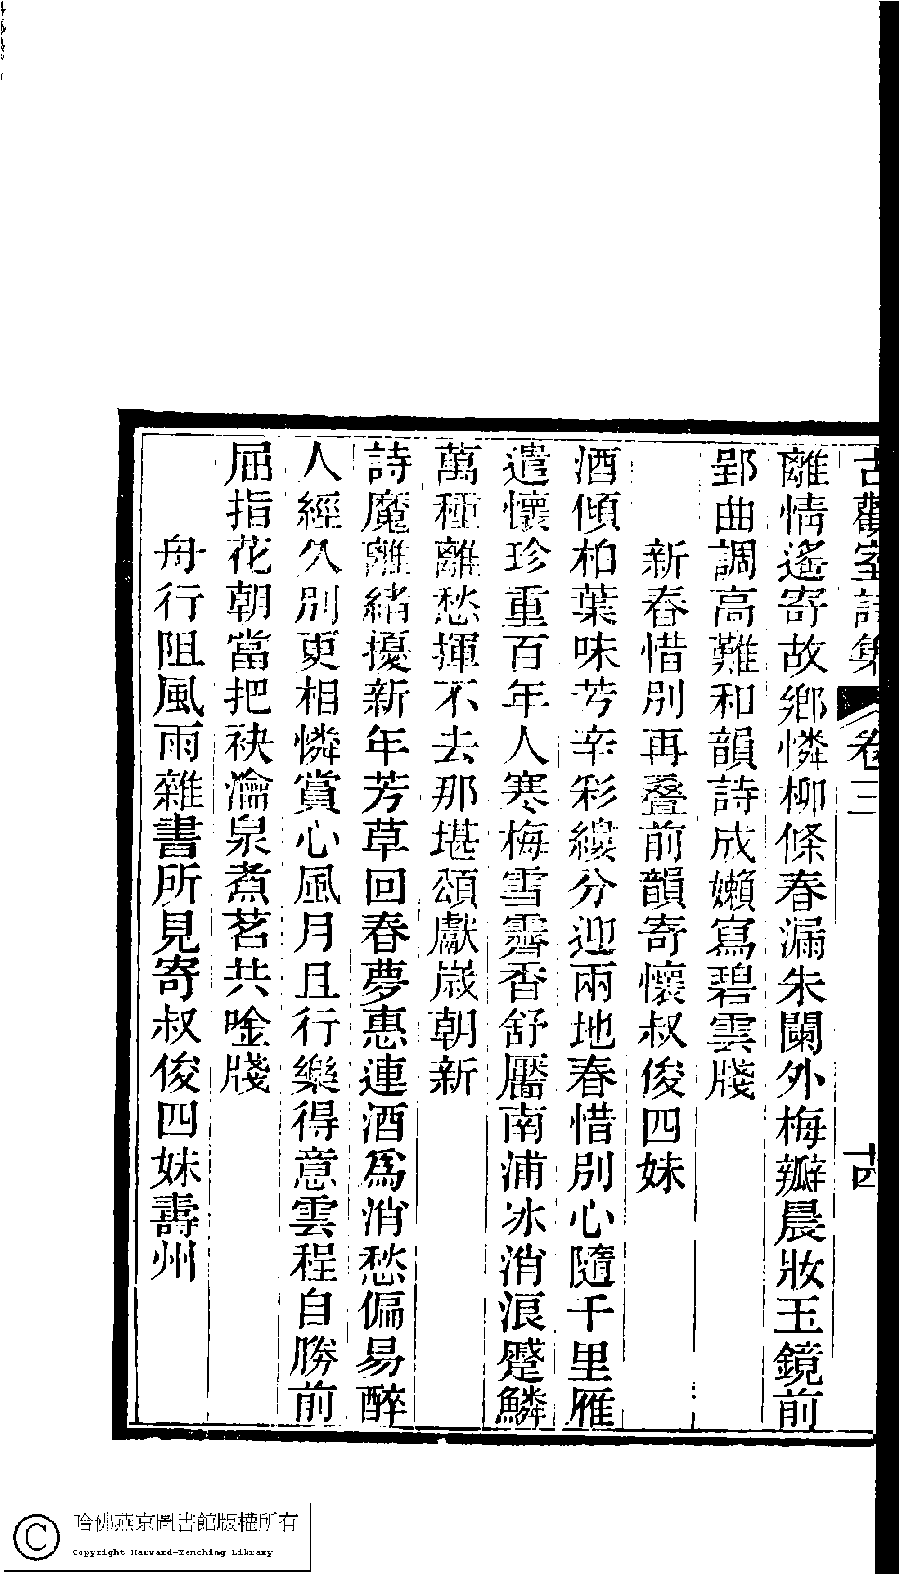 古歡室詩集 卷三 十四
離情遙寄故鄉憐柳條春漏朱闌外梅瓣晨妝玉鏡前
郢曲調高難和韻詩成嬾寫碧雲牋
新春惜別再疊前韻寄懷叔俊四妹
酒傾柏葉味芳辛彩縷分迎兩地春惜別心隨千里雁
遣懷珍重百年人寒梅雪霽香舒靨南浦冰消浪蹙鱗
萬種離愁揮不去那堪頌獻歲朝新
詩魔離緒擾新年芳草回春夢惠連酒爲消愁偏易醉
人經久別更相憐賞心風月且行樂得意雲程自勝前
屈指花朝當把袂瀹泉煮茗共唫牋
舟行阻風雨雜書所見寄叔俊四妹壽州
哈佛燕京圖書館版權所有
Copyright Harvard-Yenching Library